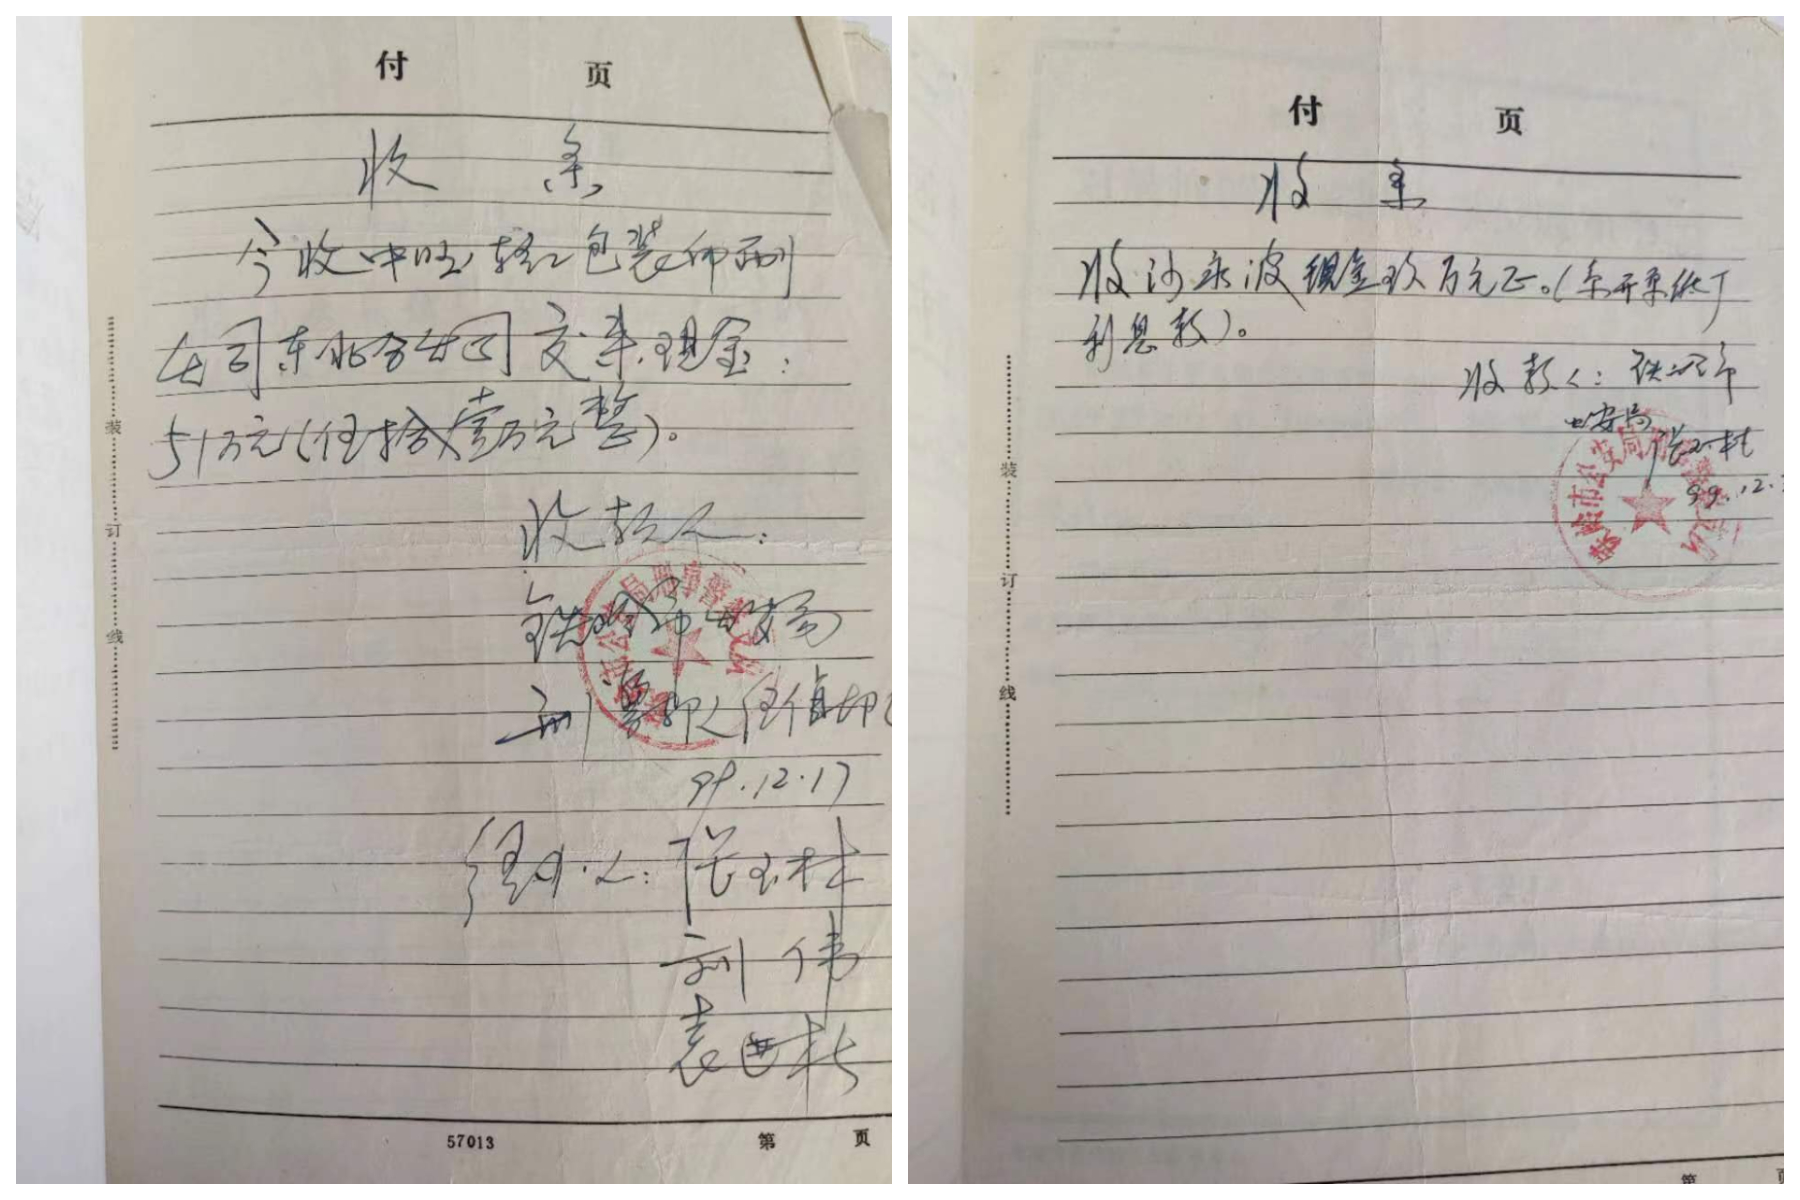 付 页
收 条
今收中 轻工包装印刷
公司东北分公司交来现金:
51万元(伍拾壹万元整)。
收款人:
铁岭市公安局
刑警
99.12.17
经办人:张玉林
刘 伟
袁 林
局刑事警
装订线
57013
第 页
付 页
收 条
收沙永波现金玖万元正。(
利息款)。
收款人:铁岭市
公安局
张玉林
99.12.
铁岭市公安局刑事警察支队
装订线
第 页